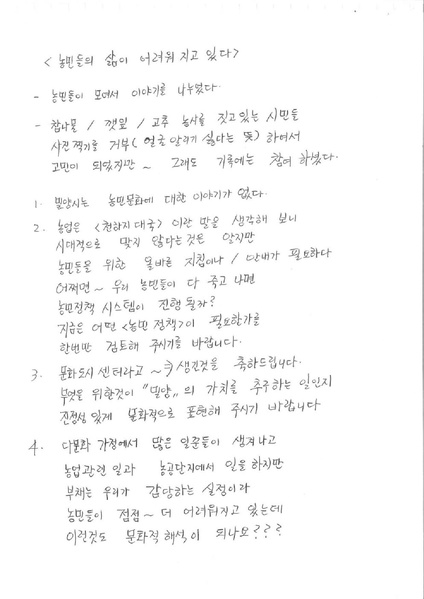 < 농민들의 삶이 어려워지고 있다 >
- 농민들이 모여서 이야기를 나누었다.
- 참나물 / 깻잎 / 고추 농사를 짓고 있는 시민들
사진찍기를 거부 ( 얼굴 알리기 싫다는 뜻) 하여서
고민이 되었지만 ~ 그래도 기록에는 참여 하셨다.
1. 밀양시는 농민문화에 대한 이야기가 없다.
2. 농업은 <천하지대국> 이란 말을 생각해 보니
시대적으로 맞지 않다는 것은 알지만
농민들을 위한 올바른 지침이나 / 안내가 필요하다
어쩌면 ~ 우리 농민들이 다 죽고 나면
농민정책 시스템이 진행 될까?
지금은 어떤 <농민 정책>이 필요한가를
한번만 검토해 주시기를 바랍니다.
3. 문화도시 센터라고 ~ 생긴것을 축하드립니다.
무엇을 위한것이 "밀양"의 가치를 추구하는 일인지
진정성 있게 문화적으로 표현해 주시기 바랍니다
4. 다문화 가정에서 많은 일꾼들이 생겨나고
농업관련 일과 농공단지에서 일을 하지만
부채는 우리가 감당하는 실정이라
농민들이 점점 ~ 더 어려워지고 있는데
이런것도 문화적 해석이 되나요???